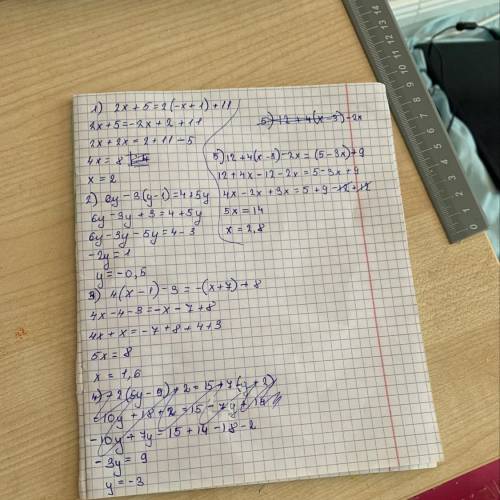 1) 2x + 5 = 2(-x + 1) + 11
2x + 5 = -2x + 2 + 11
2x + 2x = 2 + 11 - 5
4x = 8
x = 2
2) 6y - 3(y - 1) = 4 + 5y
6y - 3y + 3 = 4 + 5y
6y - 3y - 5y = 4 - 3
-2y = 1
y = -0,5
3) 4(x - 1) - 3 = -(x + 7) + 8
4x - 4 - 3 = -x - 7 + 8
4x + x = -7 + 8 + 4 + 3
5x = 8
x = 1,6
4) -2(5y - 9) + 2 = 15 + 7(y + 2)
-10y + 18 + 2 = 15 - 7y + 14
-10y + 7y = 15 + 14 - 18 - 2
-3y = 9
y = -3
5) 12 + 4(x - 3) - 2x
5) 12 + 4(x - 3) - 2x = (5 - 3x) + 9
12 + 4x - 12 - 2x = 5 - 3x + 9
4x - 2x + 3x = 5 + 9 - 12 + 12
5x = 14
x = 2,8